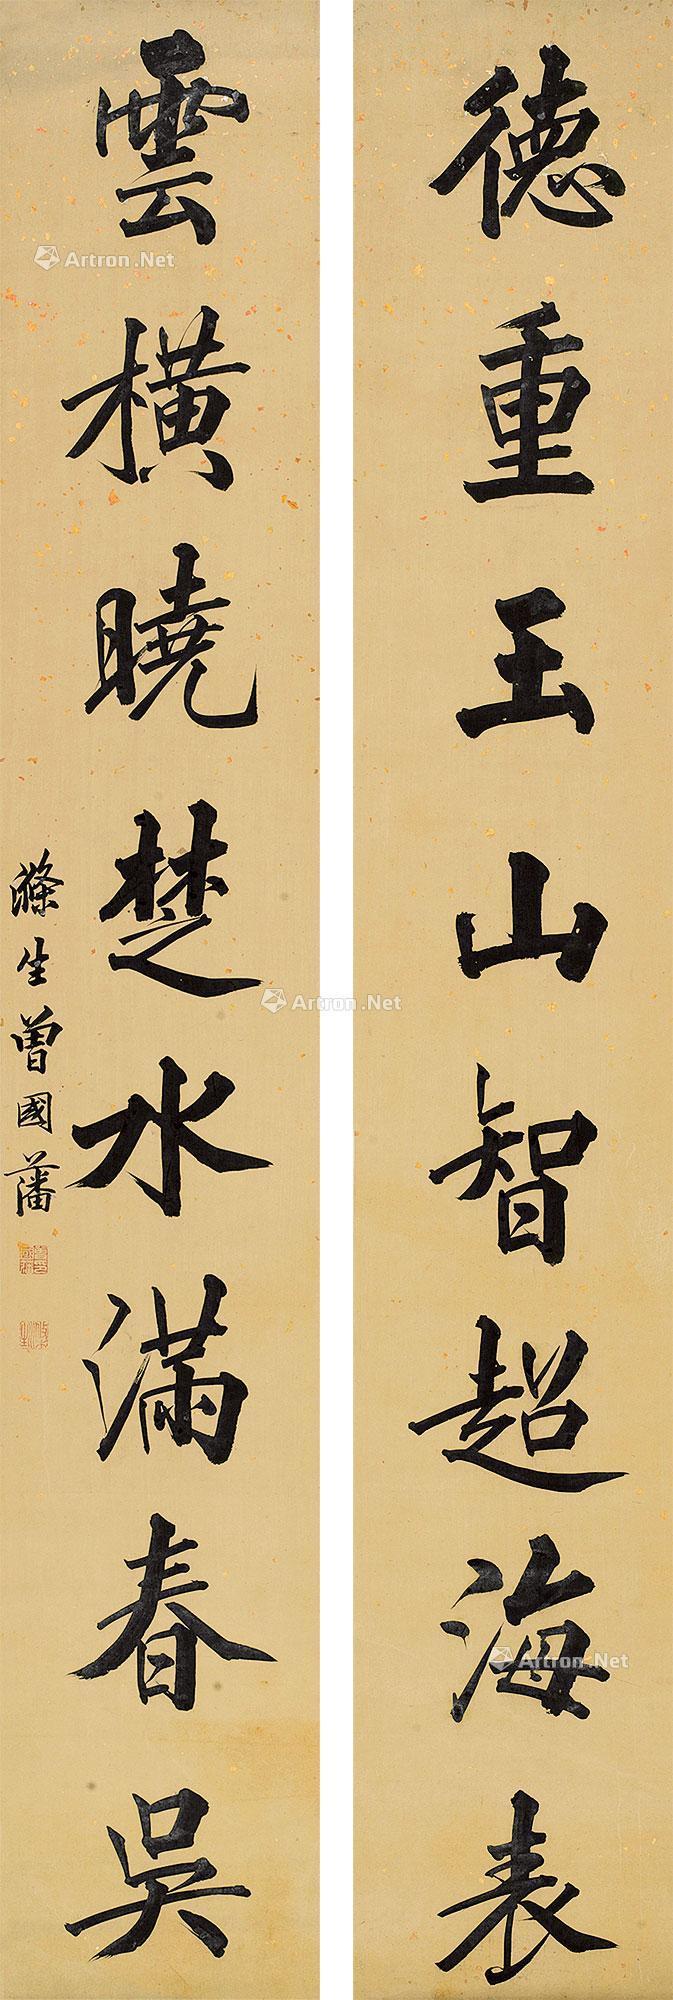 德重玉山智超海表
雲橫曉楚水滿春吳
滌生曾國藩
Artron.Net
Artron.Net
Artron.Net